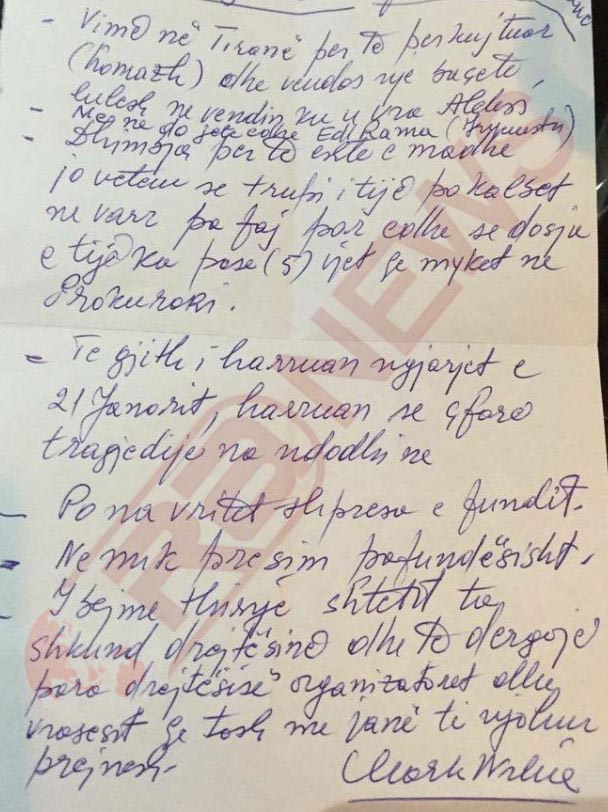 - Vimë në Tiranë per të perkujtuar
(homazh) dhe vendos nje buqetë
lulesh ne vendin ku u vra Aleksi
Me ne do jete edhe Edi Rama (Kryeministri)
- Dhimbja per të eshte e madhe
jo vetem se trupi i tijë po kalbet
ne varr pa faj por edhe se dosja
e tijë ka pese (5) vjet qe myket ne
Prokurori.
- Te gjith i harruan ngjarjet e
21 Janarit, harruan se çfarë
tragjedije na ndodhi ne
- Po na vritet shpresa e fundit.
- Ne nuk presim pafundësisht.
- I bejme thirrje shtetit ta
shkund drejtësinë dhe të dergojë
para drejtësisë organizatoret dhe
vrasesit qe tash me janë te njohur
prejnesh.
R@NEWS